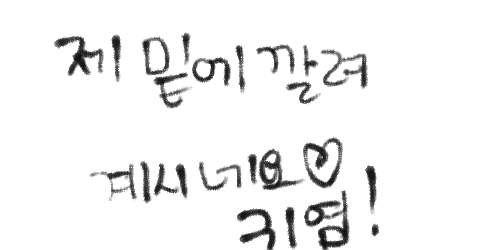 제 밑에 깔려
계시네요♡
귀염!